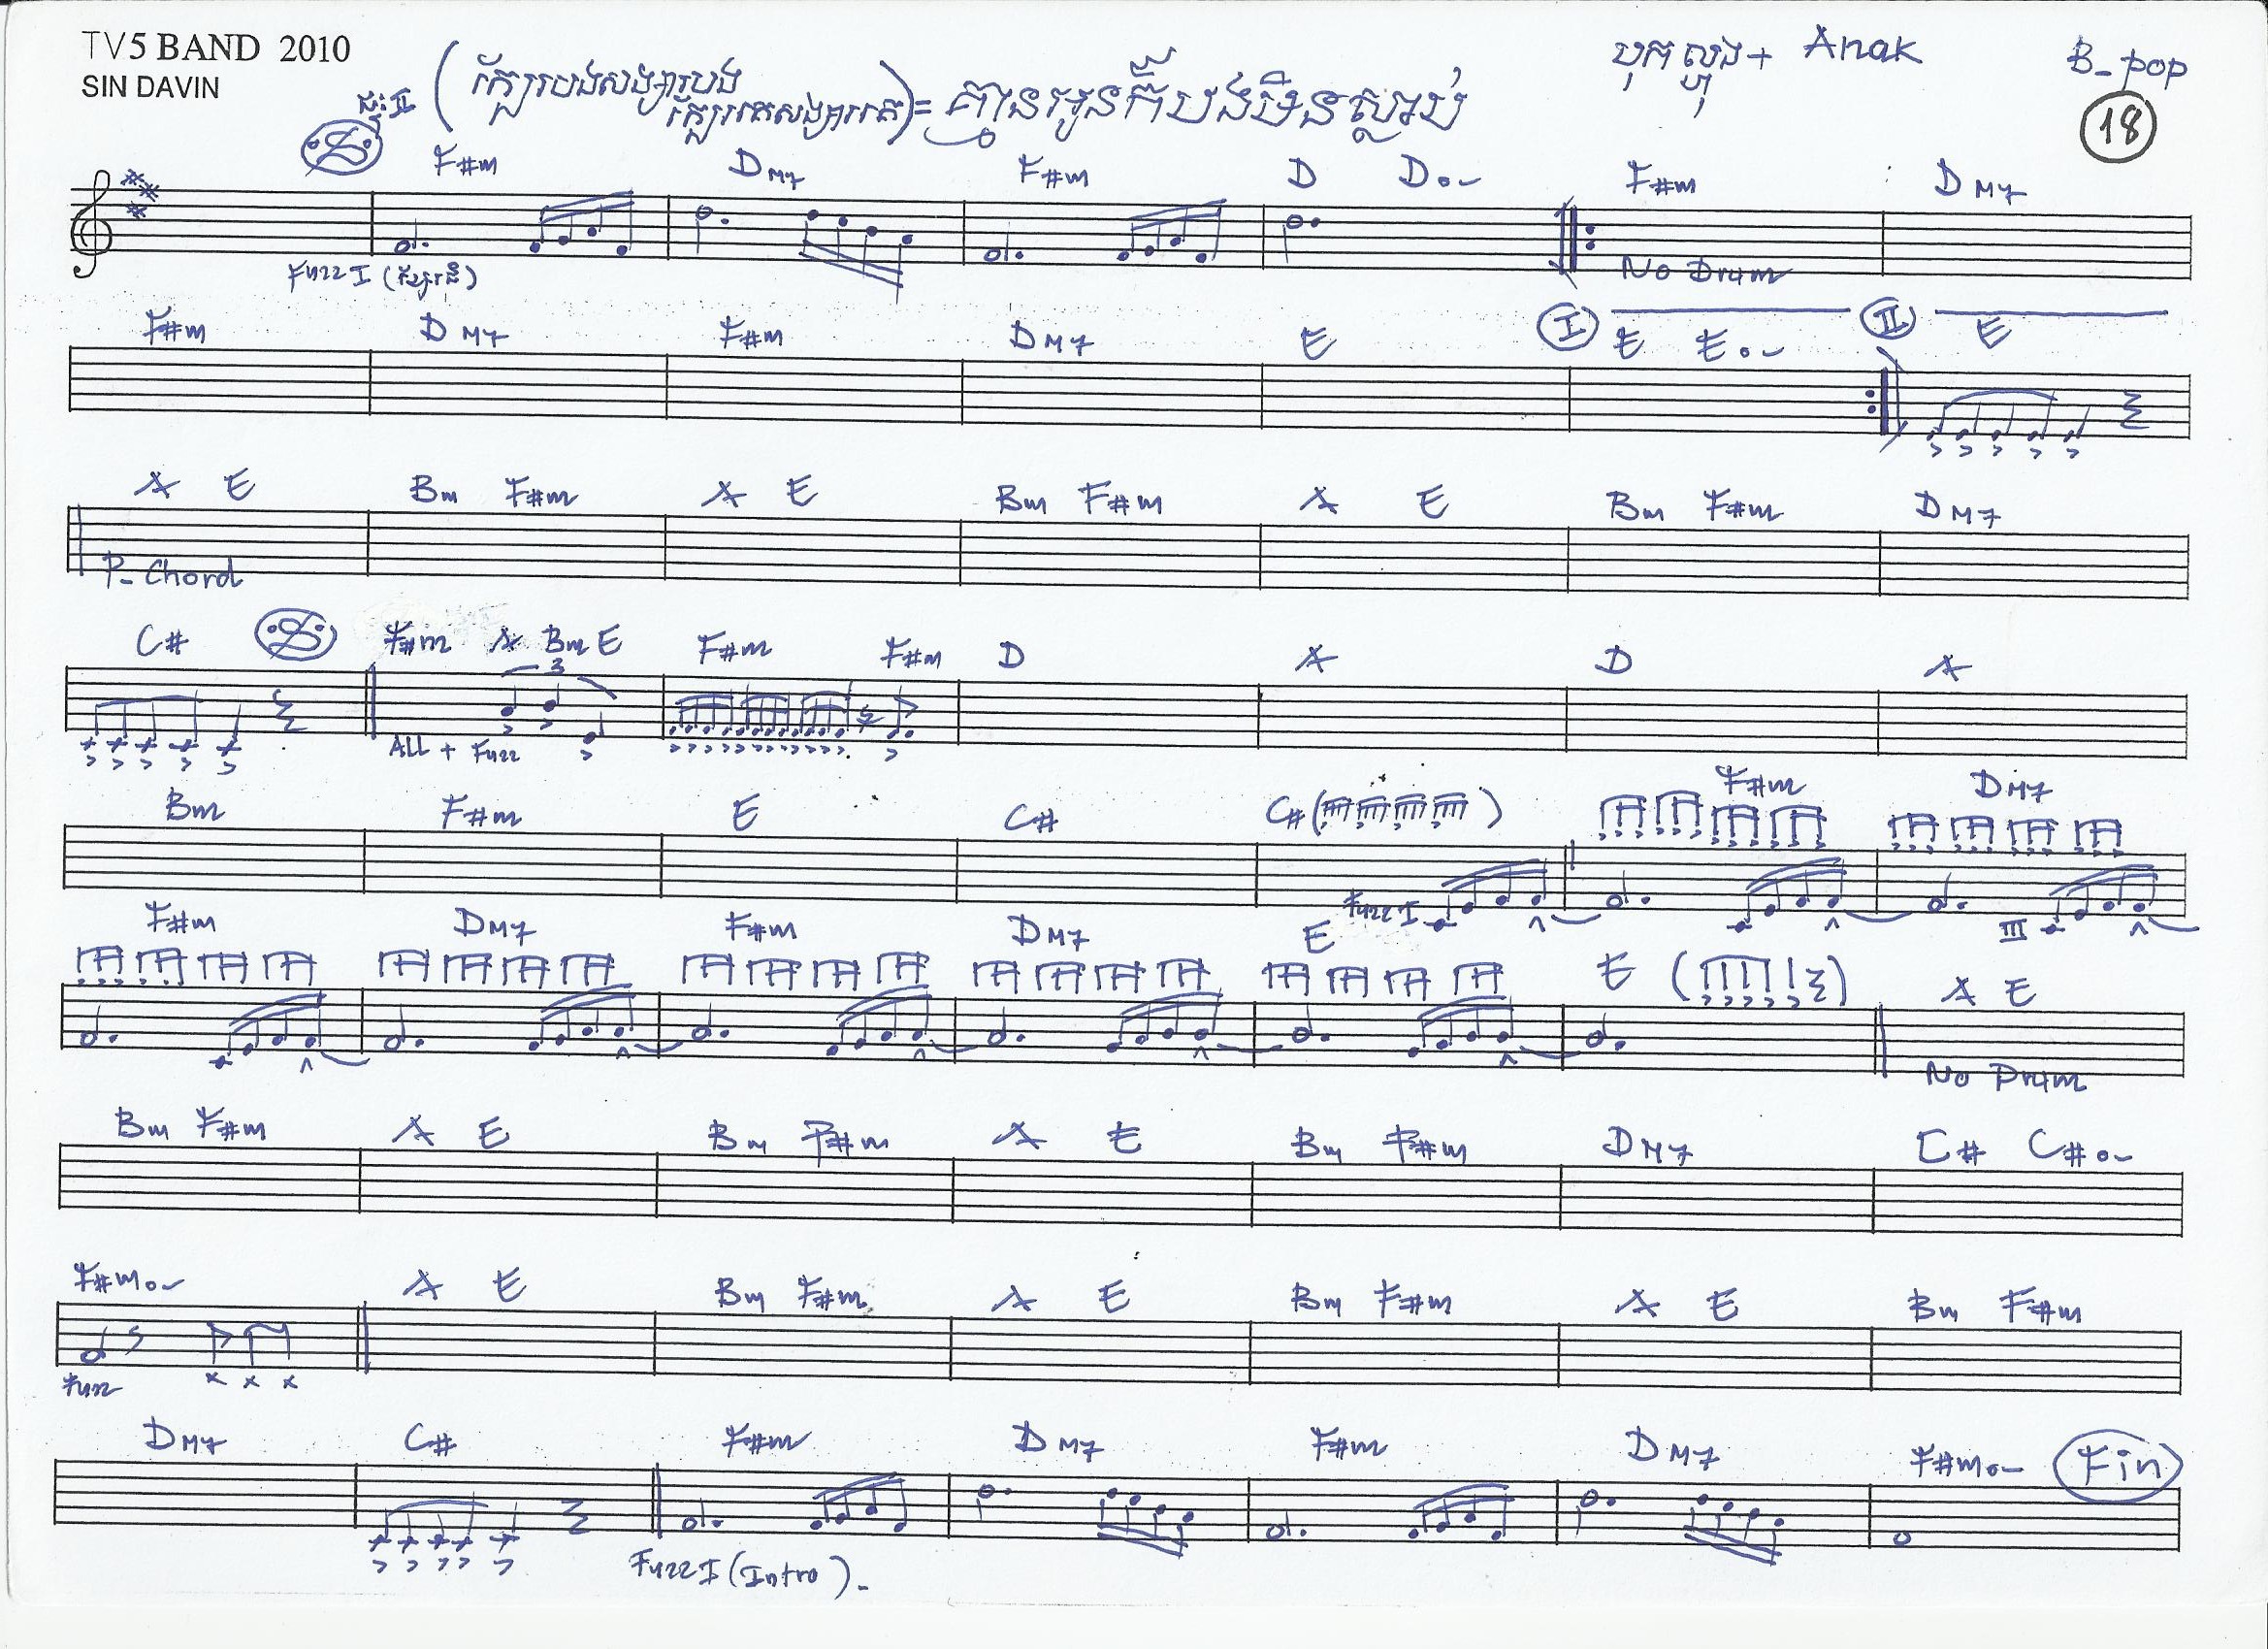 TV5 BAND 2010
SIN DAVIN
(ក្បែរបងសង្សារបង
ក្បែររតសង្សាររត) = គ្មានអូនក៏បងមិនស្លាប់
+ Anak
B-pop
18
F#m DM7 F#m D Do~ F#m DM7
Fuzz I No Drum
F#m DM7 F#m DM7 E I E Eo~ II E
A E Bm F#m A E Bm F#m A E Bm F#m DM7
P-Chord
C# F#m A Bm E F#m F#m D A D A
3
ALL + Fuzz
Bm F#m E C# C# ( ) F#m DM7
Fuzz I III
F#m DM7 F#m DM7 E E ( ) A E
No Drum
Bm F#m A E Bm F#m A E Bm F#m DM7 C# C#o~
F#mo~ A E Bm F#m A E Bm F#m A E Bm F#m
Fuzz
DM7 C# F#m DM7 F#m DM7 F#mo~ Fin
Fuzz I (Intro).